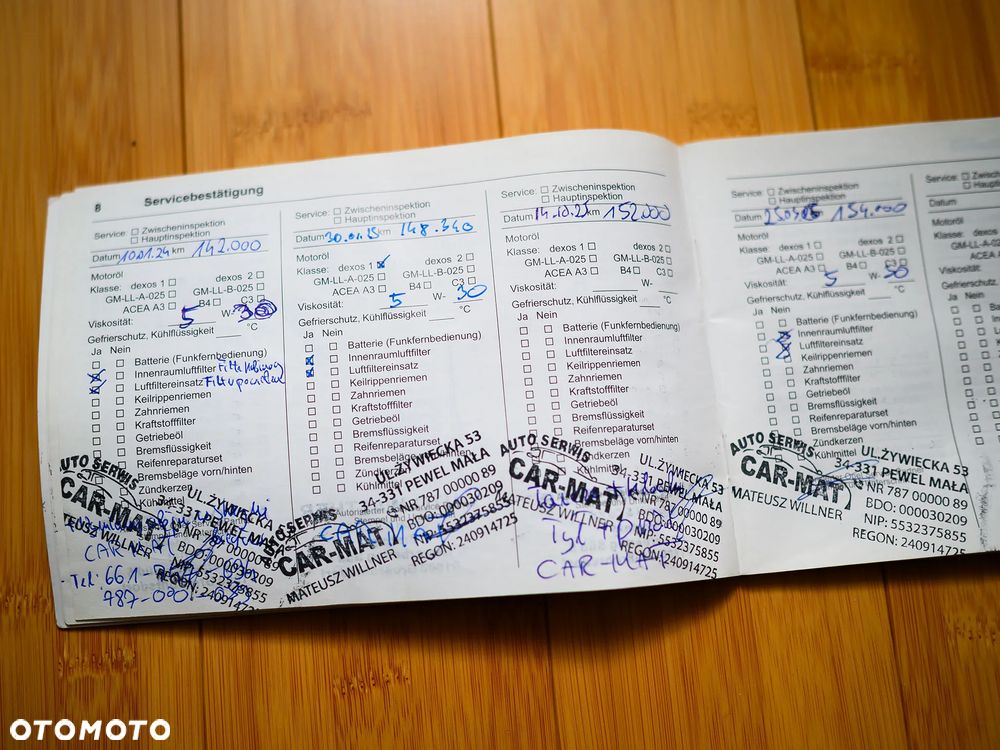 8 Servicebestätigung
Service: Zwischeninspektion
Hauptinspektion
Datum 10.01.24 km 142.000
Motoröl
Klasse: dexos 1 dexos 2
GM-LL-A-025 GM-LL-B-025
ACEA A3 B4 C3
Viskosität: 5 W- 30
Gefrierschutz, Kühlflüssigkeit °C
Ja Nein
Batterie (Funkfernbedienung)
Innenraumluftfilter
Luftfiltereinsatz
Keilrippenriemen
Zahnriemen
Kraftstofffilter
Getriebeöl
Bremsflüssigkeit
Reifenreparaturset
Bremsbeläge vorn/hinten
Zündkerzen
Kühlmittel
AUTO SERWIS
CAR-MAT
MATEUSZ WILLNER
UL.ŻYWIECKA 53
34-331 PEWEL MAŁA
NR 787 00000 89
BDO: 000030209
NIP: 5532375855
REGON: 240914725
CAR-MAT
Service: Zwischeninspektion
Hauptinspektion
Datum 30.01.25 km 148.340
Motoröl
Klasse: dexos 1 dexos 2
GM-LL-A-025 GM-LL-B-025
ACEA A3 B4 C3
Viskosität: 5 W- 30
Gefrierschutz, Kühlflüssigkeit °C
Ja Nein
Batterie (Funkfernbedienung)
Innenraumluftfilter
Luftfiltereinsatz
Keilrippenriemen
Zahnriemen
Kraftstofffilter
Getriebeöl
Bremsflüssigkeit
Reifenreparaturset
Bremsbeläge vorn/hinten
Zündkerzen
Kühlmittel
AUTO SERWIS
CAR-MAT
MATEUSZ WILLNER
UL.ŻYWIECKA 53
34-331 PEWEL MAŁA
NR 787 00000 89
BDO: 000030209
NIP: 5532375855
REGON: 240914725
CAR-MAT
Service: Zwischeninspektion
Hauptinspektion
Datum km 152000
Motoröl
Klasse: dexos 1 dexos 2
GM-LL-A-025 GM-LL-B-025
ACEA A3 B4 C3
Viskosität: W-
Gefrierschutz, Kühlflüssigkeit °C
Ja Nein
Batterie (Funkfernbedienung)
Innenraumluftfilter
Luftfiltereinsatz
Keilrippenriemen
Zahnriemen
Kraftstofffilter
Getriebeöl
Bremsflüssigkeit
Reifenreparaturset
Bremsbeläge vorn/hinten
Zündkerzen
AUTO SERWIS
CAR-MAT
MATEUSZ WILLNER
UL.ŻYWIECKA 53
34-331 PEWEL MAŁA
NR 787 00000 89
BDO: 000030209
NIP: 5532375855
REGON: 240914725
Tył
CAR-MAT
Service: Zwischeninspektion
Hauptinspektion
Datum km 154.000
Motoröl
Klasse: dexos 1 dexos 2
GM-LL-A-025 GM-LL-B-025
ACEA A3 B4 C3
Viskosität: 5 W- 30
Gefrierschutz, Kühlflüssigkeit °C
Ja Nein
Batterie (Funkfernbedienung)
Innenraumluftfilter
Luftfiltereinsatz
Keilrippenriemen
Zahnriemen
Kraftstofffilter
Getriebeöl
Bremsflüssigkeit
Reifenreparaturset
Bremsbeläge vorn/hinten
Zündkerzen
Kühlmittel
AUTO SERWIS
CAR-MAT
MATEUSZ WILLNER
UL.ŻYWIECKA 53
34-331 PEWEL MAŁA
NR 787 00000 89
BDO: 000030209
NIP: 5532375855
REGON: 240914725
Service:
Datum
Motoröl
Klasse:
GM-LL-A-025
Viskosität:
Gefrierschutz
Ja Nein
OTOMOTO